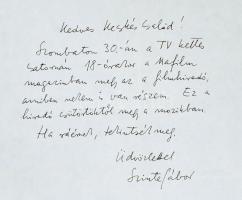 Kedves Kecskés Család!
Szombaton 30.-án a TV kettes
csatornán 18 órakor a Mafilm
magazinban megy az a filmhíradó,
amiben nekem is van részem. Ez a
híradó csütörtöktől megy a mozikban.
Ha ráérnek, tekintsék meg.
Üdvözlettel
Szinte Gábor